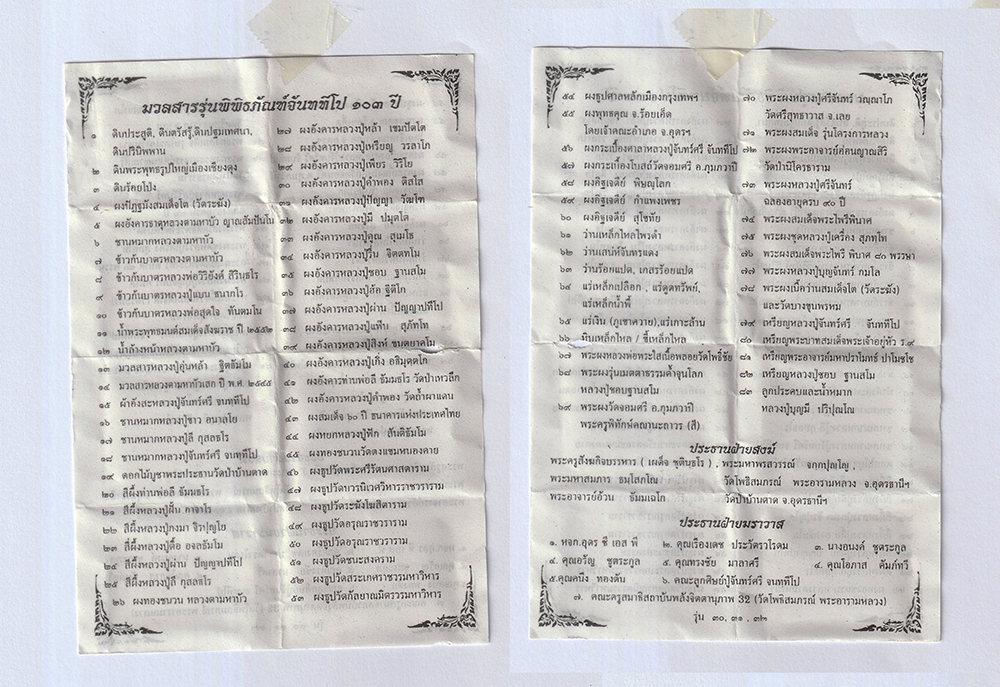 มวลสารรุ่นพิพิธภัณฑ์จันททีโป ๑๐๓ ปี
๑ ดินประสูติ, ดินตรัสรู้,ดินปฐมเทศนา,
ดินปรินิพพาน
๒ ดินพระพุทธรูปใหญ่เมืองเชียงตุง
๓ ดินร้อยโป่ง
๔ ผงปัฏฐมังสมเด็จโต (วัดระฆัง)
๕ ผงอังคารธาตุหลวงตามหาบัว ญาณสัมปันโน
๖ ชานหมากหลวงตามหาบัว
๗ ข้าวก้นบาตรหลวงตามหาบัว
๘ ข้าวก้นบาตรหลวงพ่อวิริยังค์ สิรินฺธโร
๙ ข้าวก้นบาตรหลวงปู่แบน ธนากโร
๑๐ ข้าวก้นบาตรหลวงพ่อสุดใจ ทันตมโน
๑๑ น้ำพระพุทธมนต์สมเด็จสังฆราช ปี ๒๕๕๒
๑๒ น้ำล้างหน้าหลวงตามหาบัว
๑๓ มวลสารหลวงปู่อุ่นหล้า ฐิตธัมโม
๑๔ มวลสารหลวงตามหาบัวเสก ปี พ.ศ. ๒๕๔๕
๑๕ ผ้าอังสะหลวงปู่จันทร์ศรี จนททีโป
๑๖ ชานหมากหลวงปู่ขาว อนาลโย
๑๗ ชานหมากหลวงปู่ลี กุสลธโร
๑๘ ชานหมากหลวงปู่จันทร์ศรี จนททีโป
๑๙ ดอกไม้บูชาพระประธานวัดป่าบ้านตาด
๒๐ สีผึ้งท่านพ่อลี ธัมมธโร
๒๑ สีผึ้งหลวงปู่ฝั้น อาจาโร
๒๒ สีผึ้งหลวงปู่กงมา จิรปุญโญ
๒๓ สีผึ้งหลวงปู่ตื้อ อจลธัมโม
๒๔ สีผึ้งหลวงปู่ผ่าน ปัญญาปทีโป
๒๕ สีผึ้งหลวงปู่ลี กุสลธโร
๒๖ ผงทองชนวน หลวงตามหาบัว
๒๗ ผงอังคารหลวงปู่หล้า เขมปัตโต
๒๘ ผงอังคารหลวงปู่เหรียญ วรลาโภ
๒๙ ผงอังคารหลวงปู่เพียร วิริโย
๓๐ ผงอังคารหลวงปู่คำพอง ติสโส
๓๑ ผงอังคารหลวงปู่ปัญญา วัฒโฑ
๓๒ ผงอังคารหลวงปู่มี ปมุตโต
๓๓ ผงอังคารหลวงปู่คูณ สุเมโธ
๓๔ ผงอังคารหลวงปู่รื่น จิตตทโม
๓๕ ผงอังคารหลวงปู่ชอบ ฐานสโม
๓๖ ผงอังคารหลวงปู่ฮ้อ ฐิติโก
๓๗ ผงอังคารหลวงปู่ผ่าน ปัญญาปทีโป
๓๘ ผงอังคารหลวงปู่แฟ๊บ สุภัทโท
๓๙ ผงอังคารหลวงปู่สิงห์ ขนตยาคโม
๔๐ ผงอังคารหลวงปู่เกิ่ง อธิมุตตโก
๔๑ ผงอังคารท่านพ่อลี ธัมมธโร วัดป่าเหวลึก
๔๒ ผงอังคารหลวงปู่คำพอง วัดถ้ำผาแดน
๔๓ ผงสมเด็จ ๖๐ ปี ธนาคารแห่งประเทศไทย
๔๔ ผงหยกหลวงปู่ฟัก สันติธัมโม
๔๕ ผงทองชนวนวัดดงแขมหนองคาย
๔๖ ผงธูปวัดพระศรีรัตนศาสดาราม
๔๗ ผงธูปวัดบวรนิเวศวิหารราชวราราม
๔๘ ผงธูปวัดระฆังโฆสิตาราม
๔๙ ผงธูปวัดอรุณราชวราราม
๕๐ ผงธูปวัดอรุณราชวราราม
๕๑ ผงธูปวัดชนะสงคราม
๕๒ ผงธูปวัดสระเกศราชวรมหาวิหาร
๕๓ ผงธูปวัดกัลยาณมิตรวรมหาวิหาร
๕๔ ผงธูปศาลหลักเมืองกรุงเทพฯ
๕๕ ผงพุทธคุณ จ.ร้อยเอ็ด
โดยเจ้าคณะอำเภอ จ.อุดรฯ
๕๖ ผงกระเบื้องศาลาหลวงปู่จันทร์ศรี จนททีโป
๕๗ ผงกระเบื้องโบสถ์วัดจอมศรี อ.กุมภวาปี
๕๘ ผงอิฐเจดีย์ พิษณุโลก
๕๙ ผงอิฐเจดีย์ กำแพงเพชร
๖๐ ผงอิฐเจดีย์ สุโขทัย
๖๑ ว่านเหล็กไหลไพรดำ
๖๒ ว่านเสน่ห์จันทรแดง
๖๓ ว่านร้อยแปด, เกสรร้อยแปด
๖๔ แร่เหล็กเปลือก , แร่ดูดทรัพย์,
แร่เหล็กน้ำพี้
๖๕ แร่เงิน (ภูเขาควาย),แร่เกาะล้าน
๖๖ หินเหล็กไหล / ขี้เหล็กไหล
๖๗ พระผงหลวงพ่อพระใสเนื้อพลอยวัดโพธิ์ชัย
๖๘ พระผงรุ่นเมตตาธรรมค้ำจุนโลก
หลวงปู่ชอบฐานสโม
๖๙ พระผงวัดจอมศรี อ.กุมภวาปี
พระครูพิทักษ์คณานะถาวร (สี)
๗๐ พระผงหลวงปู่ศรีจันทร์ วณฺณาโภ
วัดศรีสุทธาวาส จ.เลย
๗๑ พระผงสมเด็จ รุ่นโครงการหลวง
๗๒ พระผงพระอาจารย์อ่อนญาณสิริ
วัดป่านิโครธาราม
๗๓ พระผงหลวงปู่ศรีจันทร์
ฉลองอายุครบ ๙๐ ปี
๗๔ พระผงสมเด็จพระไพรีพินาศ
๗๕ พระผงชุดหลวงปู่เครื่อง สุภทฺโท
๗๖ พระผงสมเด็จพระไพรี พินาศ ๘๐ พรรษา
๗๗ พระผงหลวงปู่บุญจันทร์ กมโล
๗๘ พระผงเนื้อว่านสมเด็จโต (วัดระฆัง)
และวัดบางขุนพรหม
๗๙ เหรียญหลวงปู่จันทร์ศรี จันททีโป
๘๐ เหรียญพระบาทสมเด็จพระเจ้าอยู่หัว ร.๙
๘๑ เหรียญพระอาจารย์มหาปราโมทย์ ปาโมชโช
๘๒ เหรียญหลวงปู่ชอบ ฐานสโม
๘๓ ลูกประคบและน้ำหมาก
หลวงปู่บุญมี ปริปุณโณ
ประธานฝ่ายสงฆ์
พระครูสังฆกิจบรรหาร ( เผด็จ ชุตินธโร ) , พระมหาพรสวรรณ์ จกกปุญโญ ,
พระมหาสมภาร ธมฺโสภโณ วัดโพธิสมภรณ์ พระอารามหลวง จ.อุดรธานีฯ
พระอาจารย์อ้วน ธัมมเฉโก วัดป่าบ้านตาด จ.อุดรธานีฯ
ประธานฝ่ายฆราวาส
๑. หจก.อุดร ซี เอส พี ๒. คุณเรืองเดช ประวัตรวโรดม ๓. นางอนงค์ ชูตระกูล
๔. คุณอรัญ ชูตระกูล ๕. คุณทรงชัย มาลาศรี ๔. คุณโอภาส คัมภ์ทวี
๕.คุณคนึง ทองดับ ๖. คณะลูกศิษย์ปู่จันทร์ศรี จนททีโป
๗. คณะครูสมาธิสถาบันพลังจิตตานุภาพ 32 (วัดโพธิสมภรณ์ พระอารามหลวง)
รุ่น ๓๐. ๓๑ . ๓๒